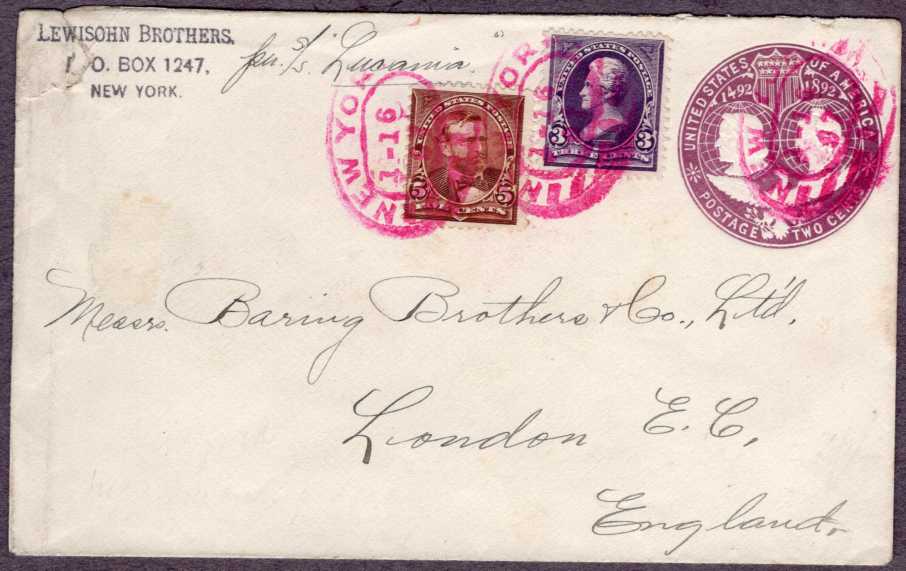 LEWISOHN BROTHERS,
P. O. BOX 1247,
NEW YORK.
per s/s "Lucania"
NEW YORK
1-16
UNITED STATES POSTAGE
5 5
CENTS
NEW YORK
1-16
UNITED STATES POSTAGE
3 3
UNITED STATES OF AMERICA
1492 1892
POSTAGE TWO CENTS
Messrs. Baring Brothers & Co., Lt'd,
London E. C,
England,